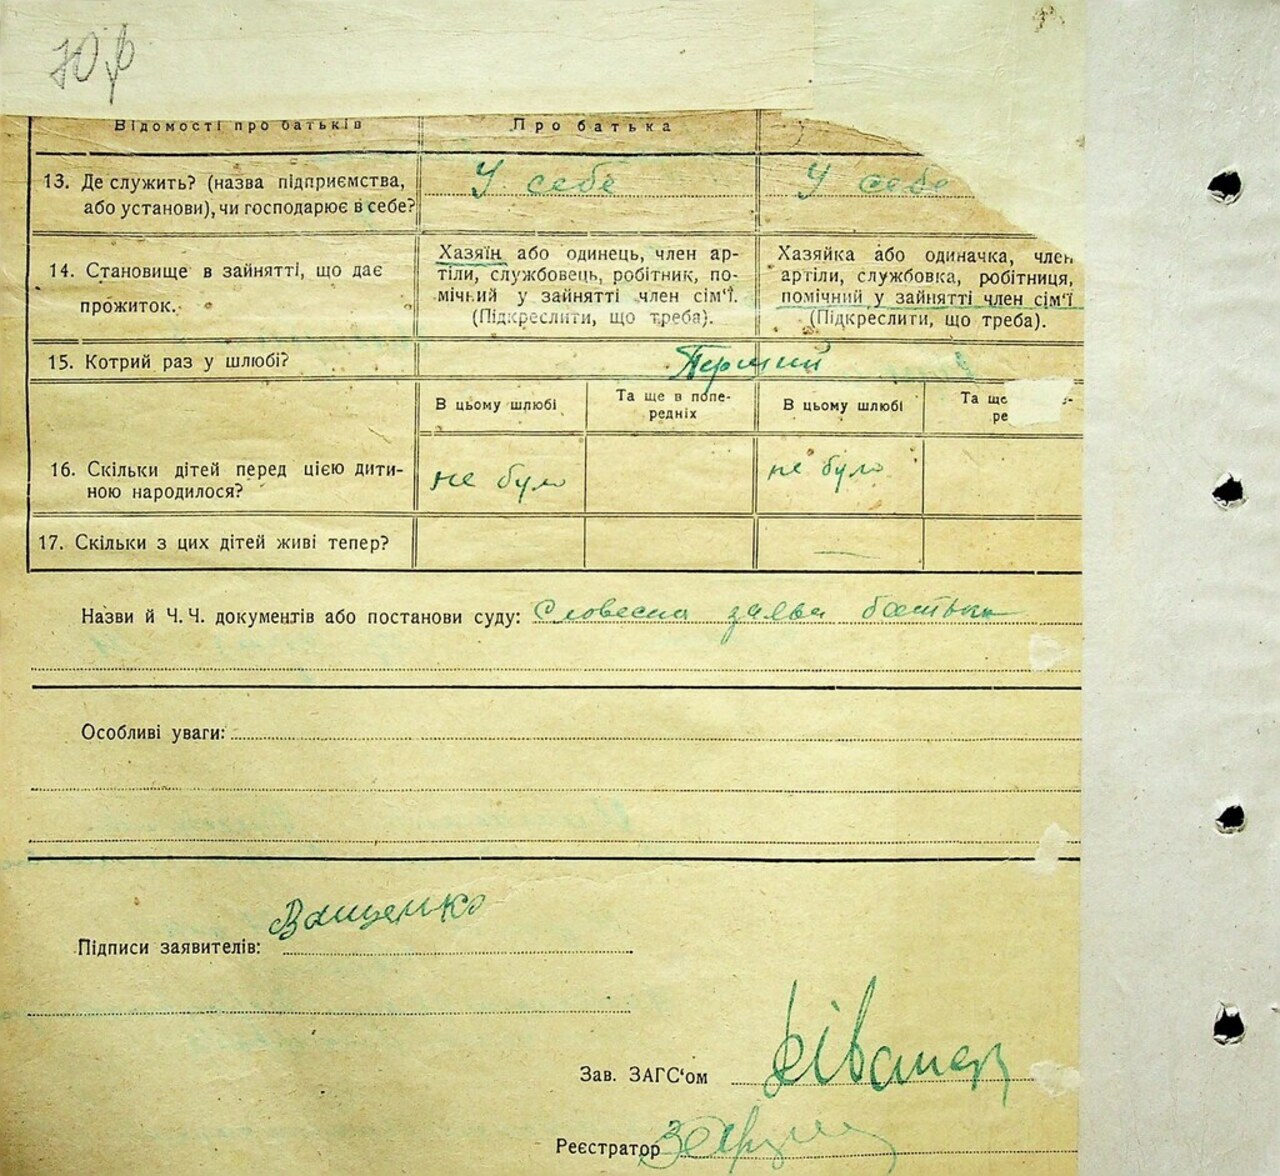 Відомості про батьків Про батька
13. Де служить? (назва підприємства, У себе У себе
або установи), чи господарює в себе?
14. Становище в зайнятті, що дає
прожиток.
Хазяїн або одинець, член ар-
тіли, службовець, робітник, по-
мічний у зайнятті член сім'ї.
(Підкреслити, що треба).
Хазяйка або одиначка, член
артіли, службовка, робітниця,
помічний у зайнятті член сім'ї
(Підкреслити, що треба).
15. Котрий раз у шлюбі? Перший
В цьому шлюбі
Та ще в попе-
редніх
В цьому шлюбі
Та ще
ре
16. Скільки дітей перед цією дити-
ною народилося?
не було
не було
17. Скільки з цих дітей живі тепер? —
Назви й Ч. Ч. документів або постанови суду: Словесна заява батька
Особливі уваги:
Ващенко
Підписи заявителів:
Зав. ЗАГС'ом
Реєстратор